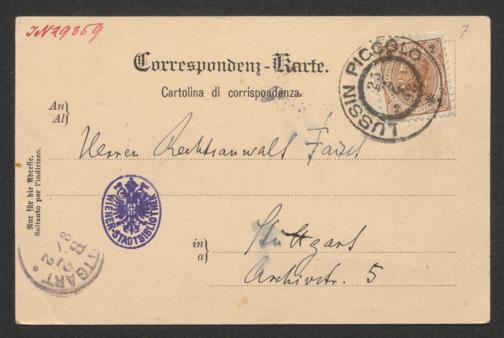 IN29359
7
Correspondenz-Karte.
Cartolina di corrispondenza.
LUSSIN PICCOLO
2
2
An}
Al}
Herren Rechtsanwalt Faisst
WIENER-STADTBIBLIOTHEK
in}
a}
Stuttgart
Archivstr. 5
Nur für die Adresse.
Soltanto per l'indirizzo.
TTGART